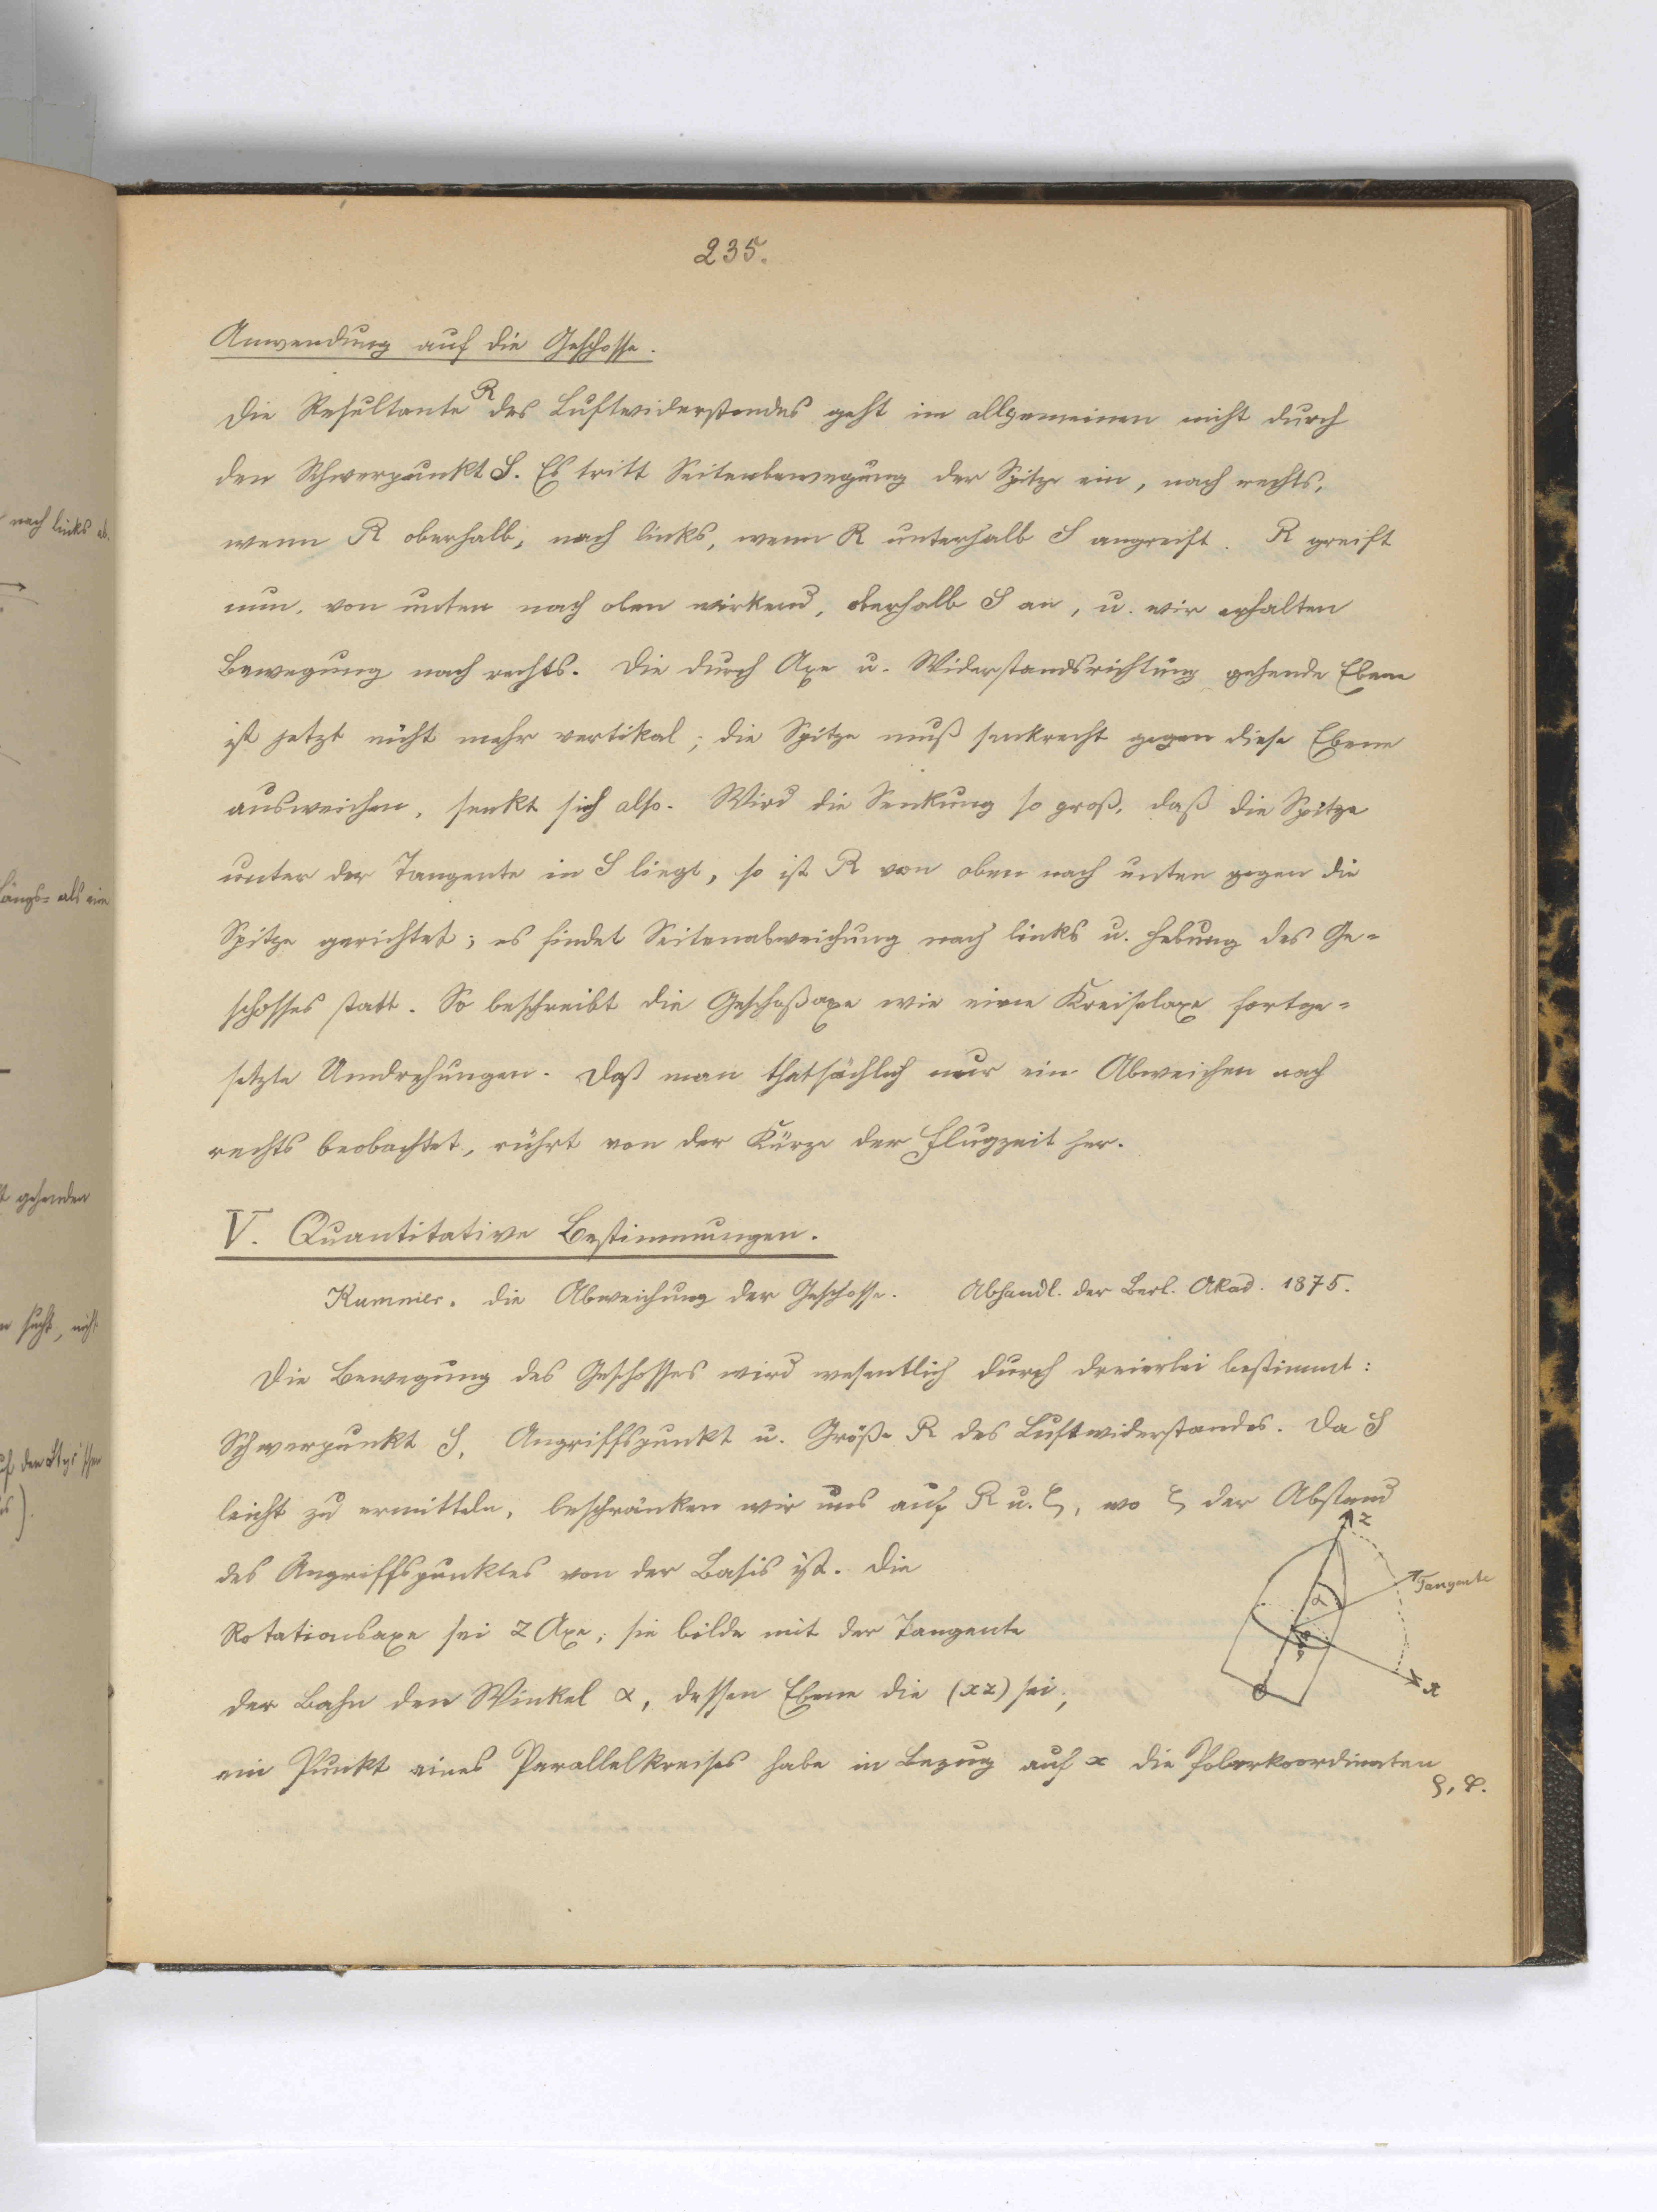 235.
Anwendung auf die Geschosse.
Die Resultante R des Luftwiderstandes geht im allgemeinen nicht durch
den Schwerpunkt S. Es tritt Seitenbewegung der Spitze ein, nach rechts,
wenn R oberhalb, nach links, wenn R unterhalb S angreift. R greift
nun, von unten nach oben wirkend, oberhalb S an, u. wir erhalten
Bewegung nach rechts. Die durch Axe u. Widerstandsrichtung gehende Ebene
ist jetzt nicht mehr vertikal; die Spitze muß senkrecht gegen diese Ebene
ausweichen, senkt sich also. Wird die Senkung so groß, daß die Spitze
unter der Tangente in S liegt, so ist R von oben nach unten gegen die
Spitze gerichtet; es findet Seitenabweichung nach links u. Hebung des Ge-
schosses statt. So beschreibt die Geschoßaxe wie eine Kreiselaxe fortge-
setzte Umdrehungen. Daß man thatsächlich nur ein Abweichen nach
rechts beobachtet, rührt von der Kürze der Flugzeit her.
V. Quantitative Bestimmungen.
Kummer. Die Abweichung der Geschosse. Abhandl. der Berl. Akad. 1875.
Die Bewegung des Geschosses wird wesentlich durch dreierlei bestimmt:
Schwerpunkt S, Angriffspunkt u. Größe R des Luftwiderstandes. Da S
leicht zu ermitteln, beschränken wir uns auf R u. ζ, wo ζ der Abstand
des Angriffspunktes von der Basis ist. Die
Rotationsaxe sei z Axe; sie bilde mit der Tangente
der Bahn den Winkel α, dessen Ebene die (xz) sei;
ein Punkt eines Parallelkreises habe in Bezug auf x die Polarkoordinaten
ρ, φ.
z
Tangente
α
x
nach links ab.
Längs- als eine
gehenden
sucht, nicht